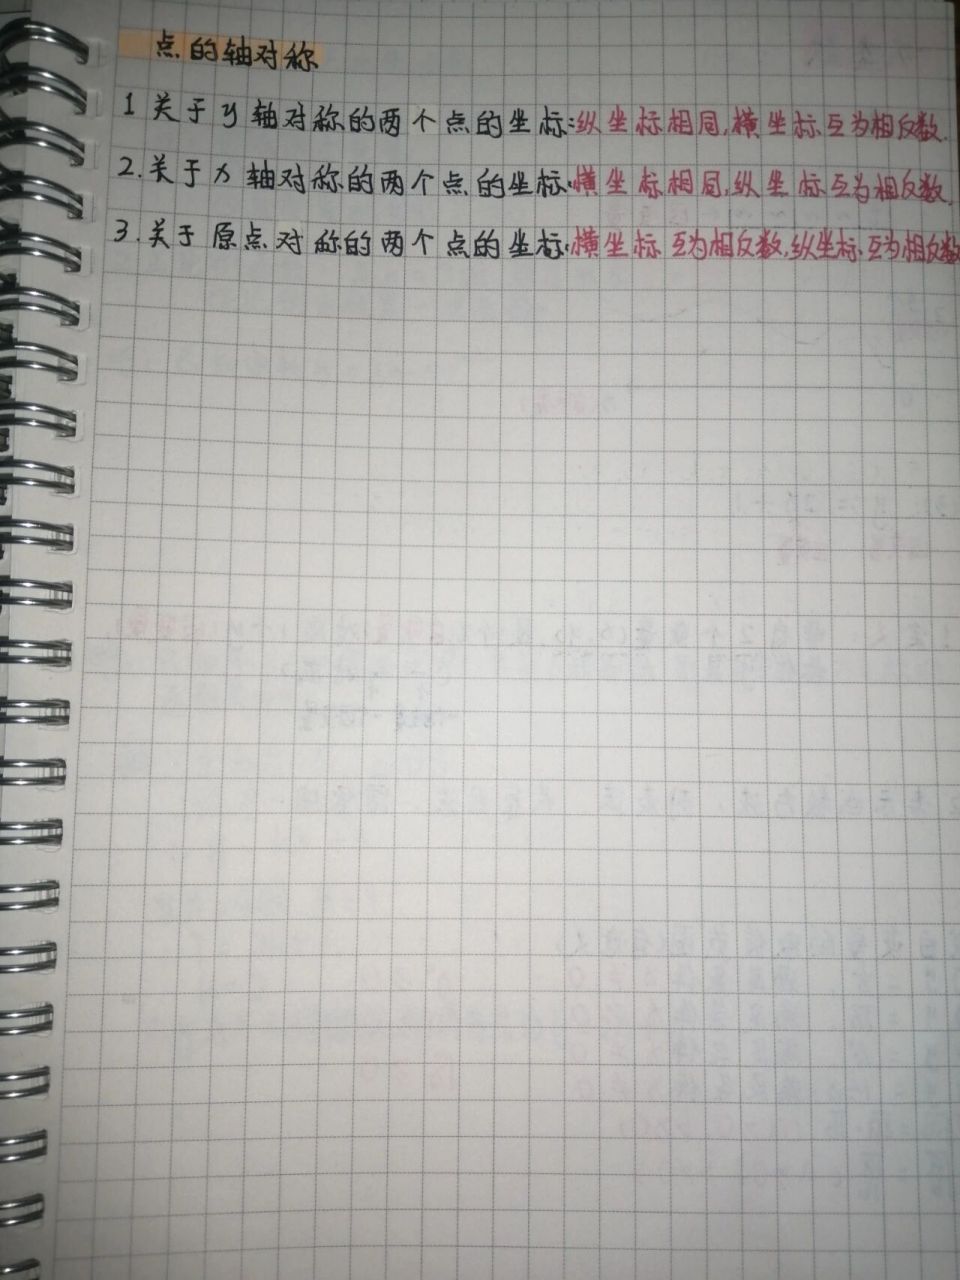 点的轴对称
1 关于y轴对称的两个点的坐标:纵坐标相同,横坐标互为相反数.
2.关于x轴对称的两个点的坐标:横坐标相同,纵坐标互为相反数.
3.关于原点对称的两个点的坐标:横坐标互为相反数,纵坐标互为相反数